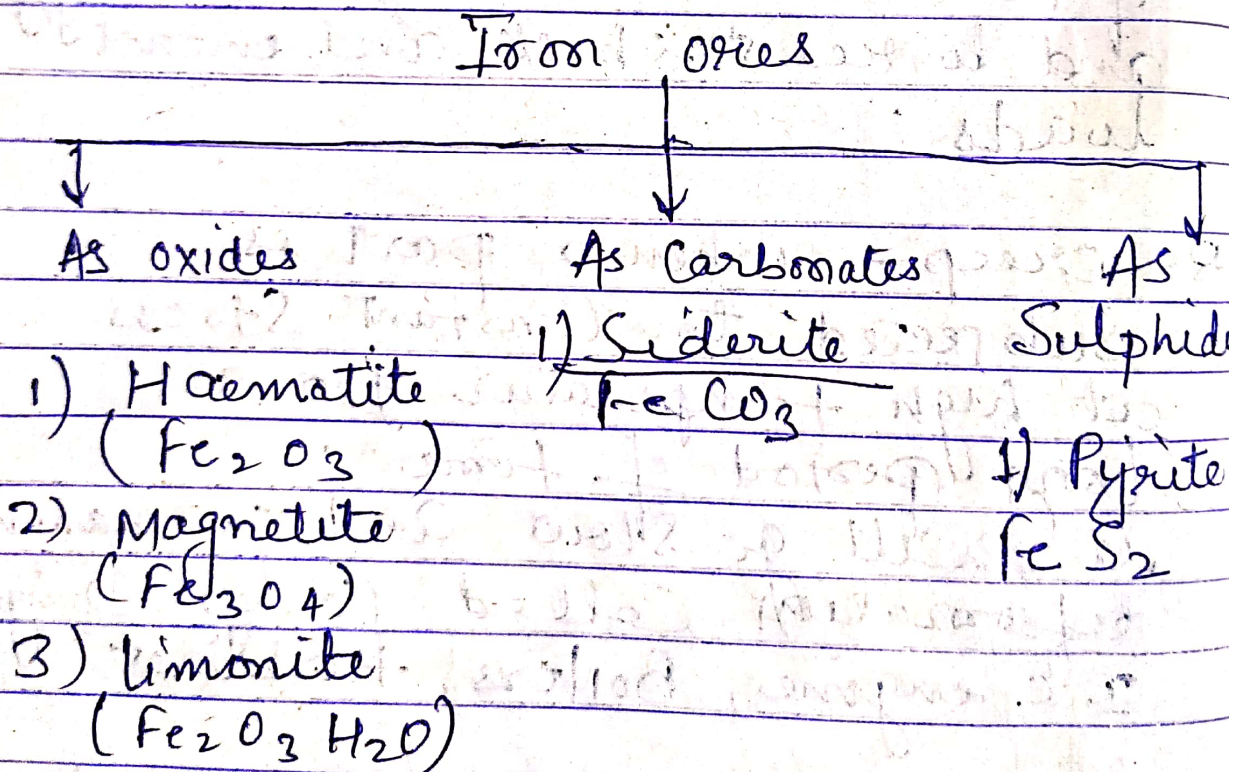 Iron ores
As oxides
1) Haematite
(Fe2O3)
2) Magnetite
(Fe3O4)
3) limonite
(Fe2O3 H2O)
As Carbonates
1) Siderite
FeCO3
As
Sulphid
1) Pyrite
FeS2